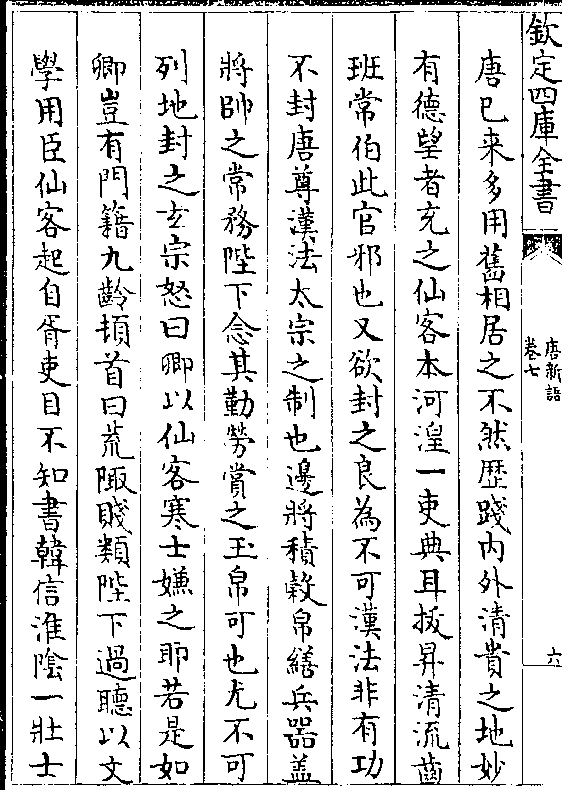 欽定四庫全書
唐新語
卷七
六
唐已来多用舊相居之不然歴踐内外清貴之地妙
有德望者充之仙客本河湟一吏典耳拔昇清流齒
班常伯此官邪也又欲封之良為不可漢法非有功
不封唐尊漢法太宗之制也邊將積穀帛繕兵器蓋
將帥之常務陛下念其勤勞賞之玉帛可也尤不可
列地封之玄宗怒曰卿以仙客寒士嫌之耶若是如
卿豈有門籍九齡頓首曰荒陬賤類陛下過聽以文
學用臣仙客起自胥吏目不知書韓信淮陰一壯士